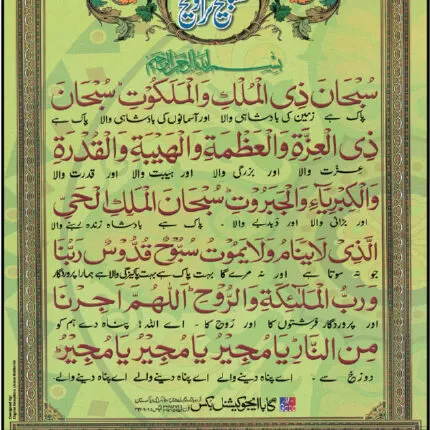 تسبیح تراویح
بسم الله الرحمن الرحيم
سُبْحَانَ ذِی الْمُلْكِ وَالْمَلَكُوْتِ سُبْحَانَ
پاک ہے زمین کی بادشاہی والا اور آسمانوں کی بادشاہی والا پاک ہے
ذِی الْعِزَّةِ وَالْعَظَمَةِ وَالْهَيْبَةِ وَالْقُدْرَةِ
عزت والا اور بزرگی والا اور ہیبت والا اور قدرت والا
وَالْكِبْرِيَآءِ وَالْجَبَرُوْتِ سُبْحَانَ الْمَلِكِ الْحَیِّ
اور بڑائی والا اور دبدبے والا ۔ پاک ہے بادشاہ زندہ رہنے والا
الَّذِیْ لَا يَنَامُ وَلَا يَمُوْتُ سُبُّوْحٌ قُدُّوْسٌ رَبُّنَا
جو نہ سوتا ہے اور نہ مرے گا بہت پاک ہے بہت پاکیزگی والا ہے ہمارا پروردگار
وَرَبُّ الْمَلٰٓئِكَةِ وَالرُّوْحِ اَللّٰهُمَّ اَجِرْنَا
اور پروردگار فرشتوں کا اور روح کا ۔ اے اللہ! پناہ دے ہم کو
مِنَ النَّارِ يَا مُجِيْرُ يَا مُجِيْرُ يَا مُجِيْرُ
دوزخ سے ۔ اے پناہ دینے والے اے پناہ دینے والے اے پناہ دینے والے ۔
گابا ایجوکیشنل بکس